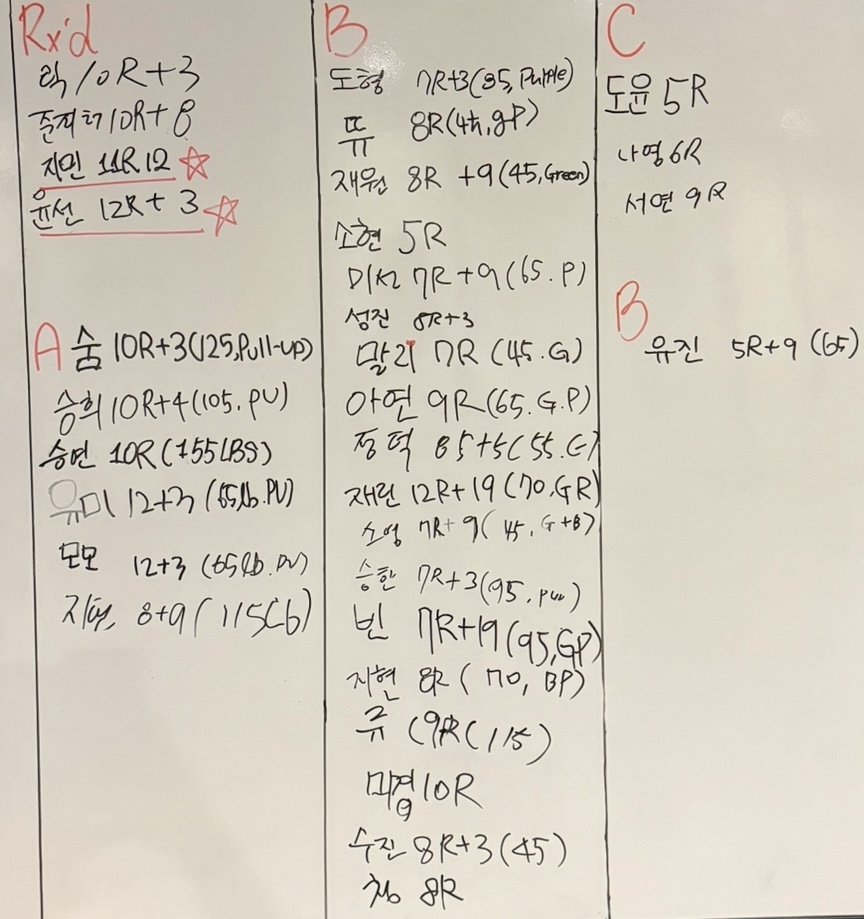 Rx'd
락 10R+3
준저터 10R+8
지민 11R12 ☆
윤선 12R+3 ☆
A
숨 10R+3(125,Pull-up)
승희 10R+4(105.PU)
승면 10R(155LBS)
유미 12+3 (65lb.PU)
모모 12+3 (65lb.PU)
8+9(115Lb)
B
도형 7R+3(85,Purple)
뜌 8R(45,gP)
재원 8R +9(45,Green)
소현 5R
미선 7R+9(65.P)
성진 8R+3
말리 7R (45.G)
아연 9R(65.G.P)
정덕 85+5(55.G)
재린 12R+19(70,GR)
소영 7R+9(45,G+B)
승한 7R+3(95.pur)
빈 7R+19(95,GP)
지현 8R(70,BP)
규 (9R(115)
미경 10R
수진 8R+3(45)
청 8R
C
도윤 5R
나영 6R
서연 9R
B
유진 5R+9 (65)